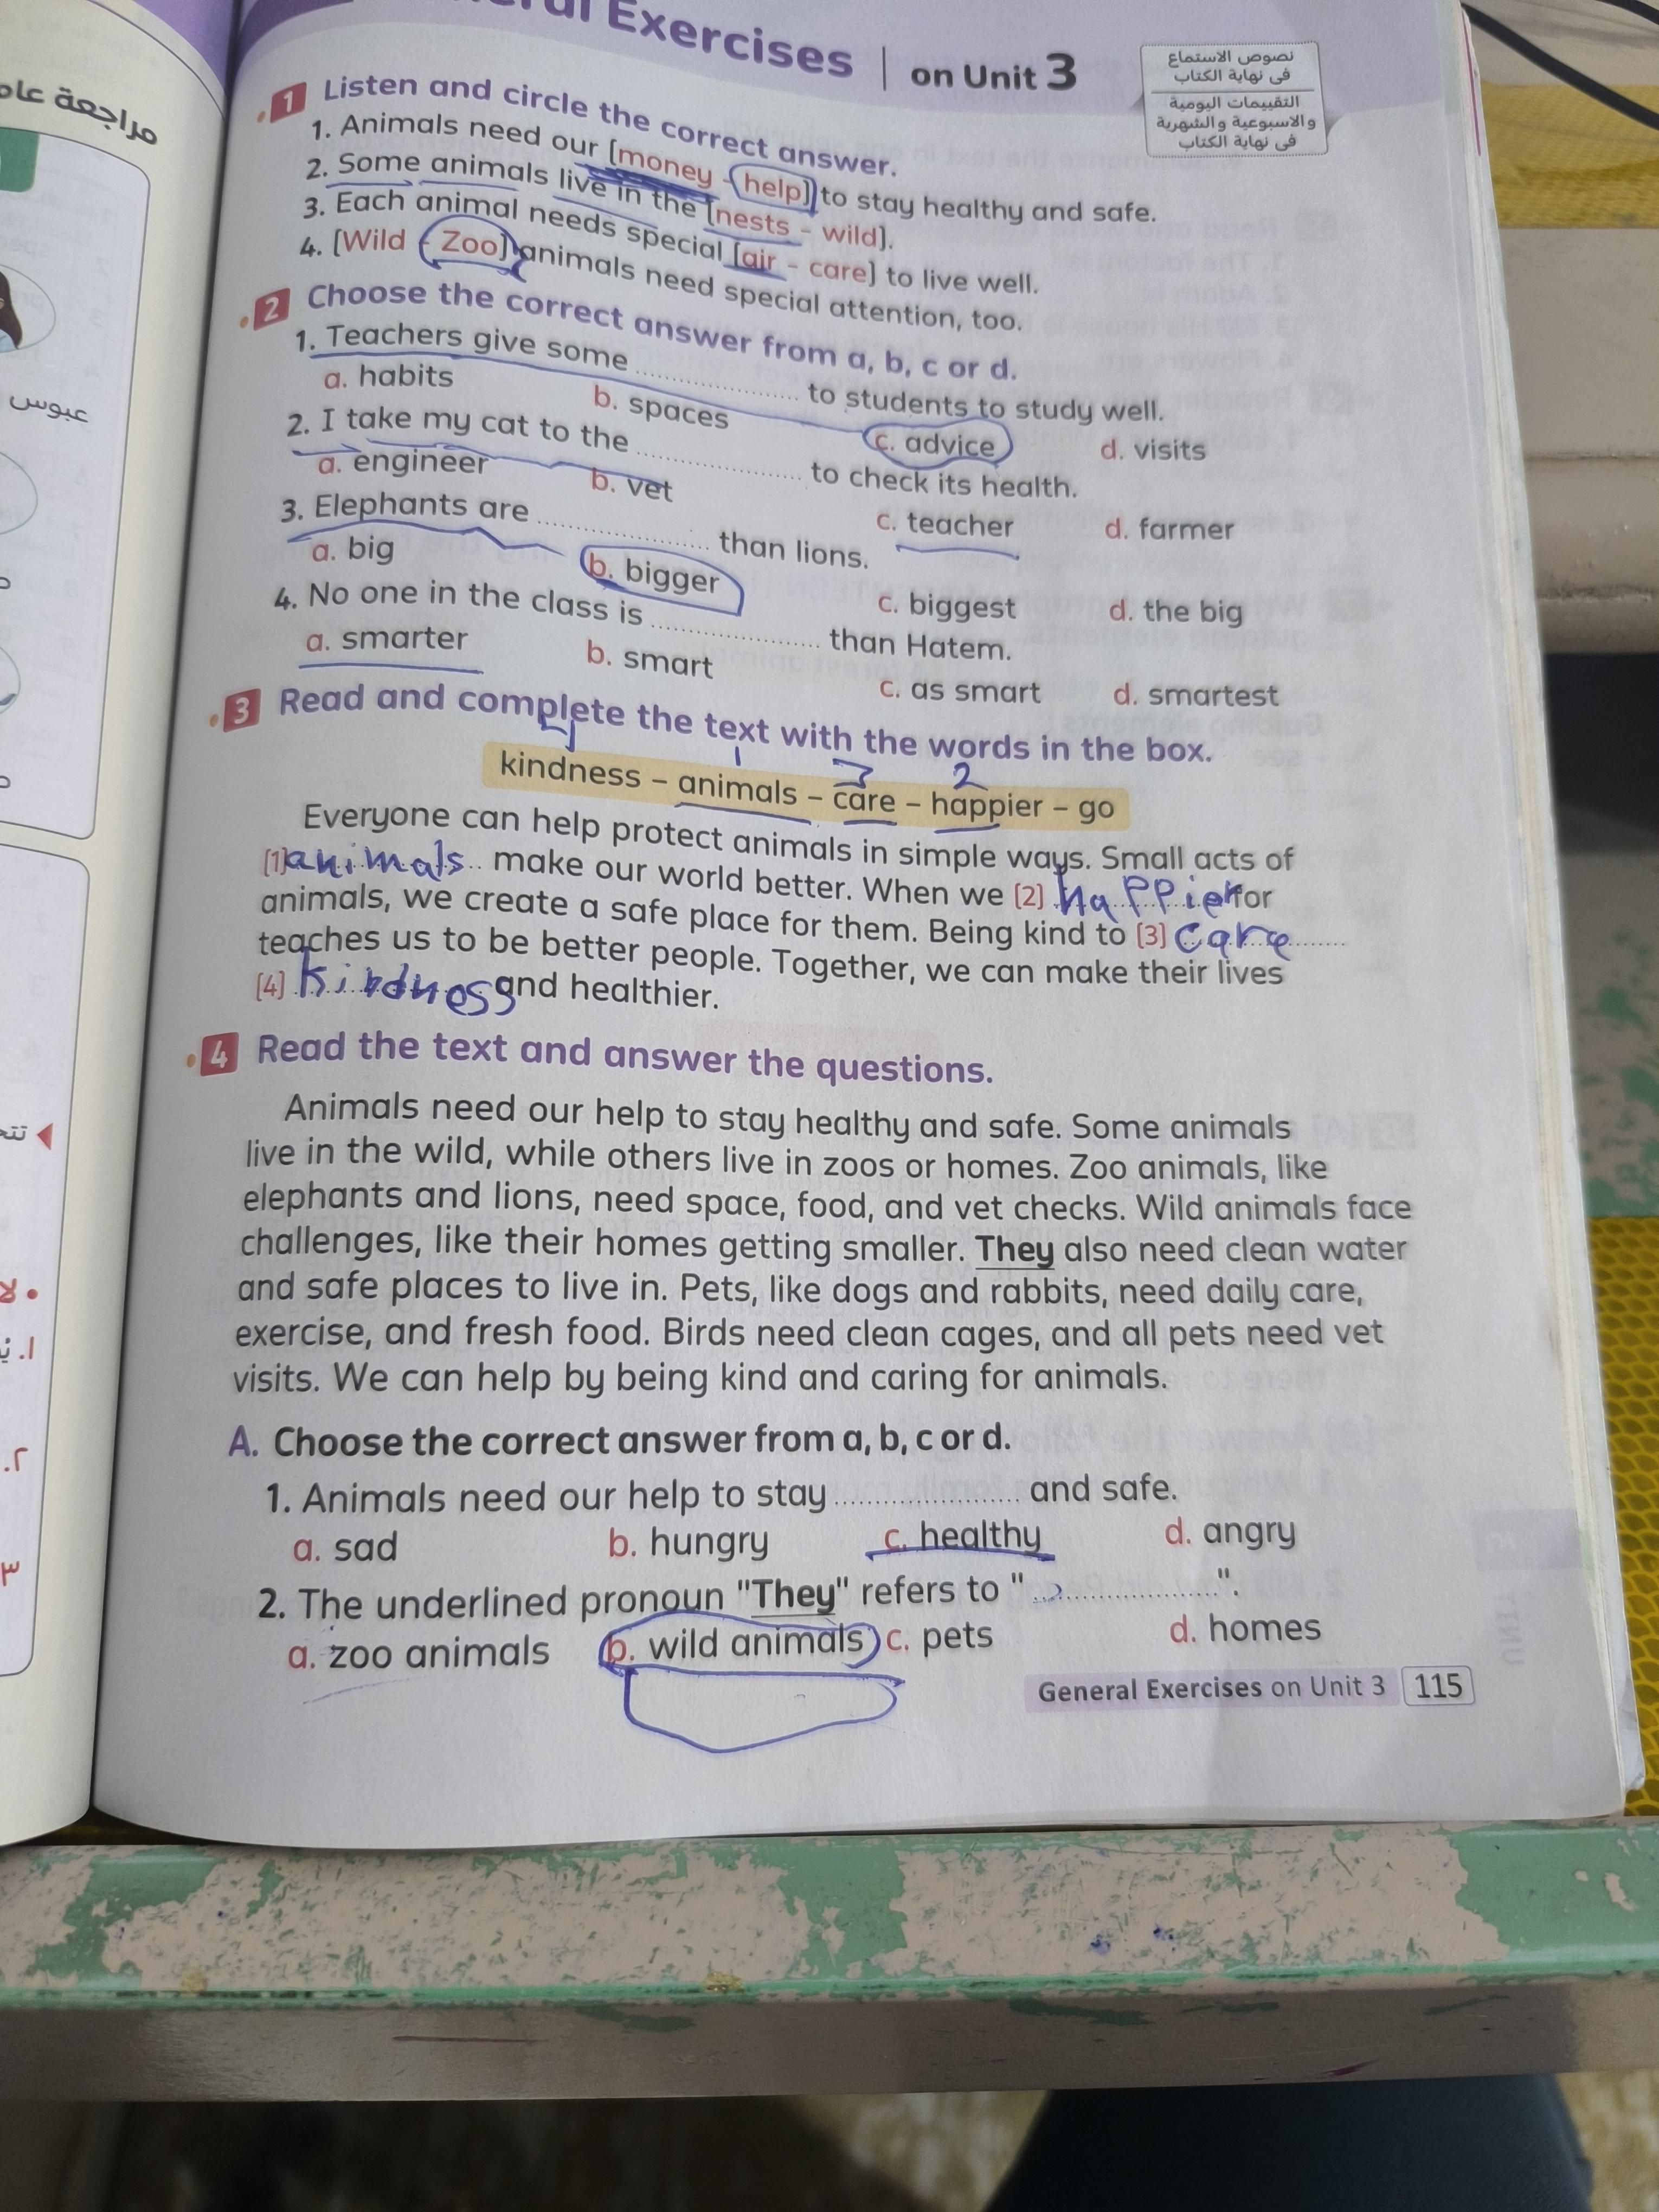 Exercises on Unit 3
نصوص الاستماع
فى نهاية الكتاب
التقييمات اليومية
والاسبوعية والشهرية
فى نهاية الكتاب
1 Listen and circle the correct answer.
1. Animals need our [money - help] to stay healthy and safe.
2. Some animals live in the [nests - wild].
3. Each animal needs special [air - care] to live well.
4. [Wild - Zoo] animals need special attention, too.
2 Choose the correct answer from a, b, c or d.
1. Teachers give some .................... to students to study well.
a. habits b. spaces c. advice d. visits
2. I take my cat to the .................... to check its health.
a. engineer b. vet c. teacher d. farmer
3. Elephants are .................... than lions.
a. big b. bigger c. biggest d. the big
4. No one in the class is .................... than Hatem.
a. smarter b. smart c. as smart d. smartest
3 Read and complete the text with the words in the box.
1 3 2
kindness – animals – care – happier – go
Everyone can help protect animals in simple ways. Small acts of
[1] animals make our world better. When we [2] happier for
animals, we create a safe place for them. Being kind to [3] care
teaches us to be better people. Together, we can make their lives
[4] kindness and healthier.
4 Read the text and answer the questions.
Animals need our help to stay healthy and safe. Some animals
live in the wild, while others live in zoos or homes. Zoo animals, like
elephants and lions, need space, food, and vet checks. Wild animals face
challenges, like their homes getting smaller. They also need clean water
and safe places to live in. Pets, like dogs and rabbits, need daily care,
exercise, and fresh food. Birds need clean cages, and all pets need vet
visits. We can help by being kind and caring for animals.
A. Choose the correct answer from a, b, c or d.
1. Animals need our help to stay .................... and safe.
a. sad b. hungry c. healthy d. angry
2. The underlined pronoun "They" refers to "....................".
a. zoo animals b. wild animals c. pets d. homes
General Exercises on Unit 3 115
مراجعة
عبوس